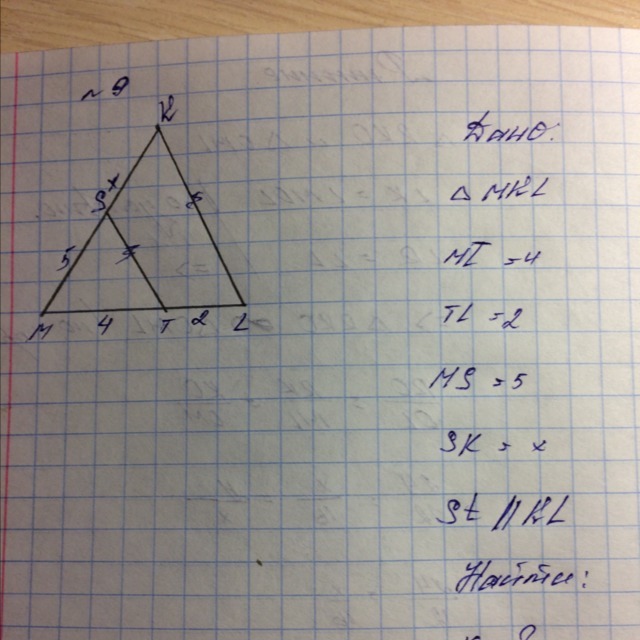 № 9
K
x
S
5
M 4 T 2 L
Дано:
△ MKL
MT = 4
TL = 2
MS = 5
SK = x
St || KL
Найти: